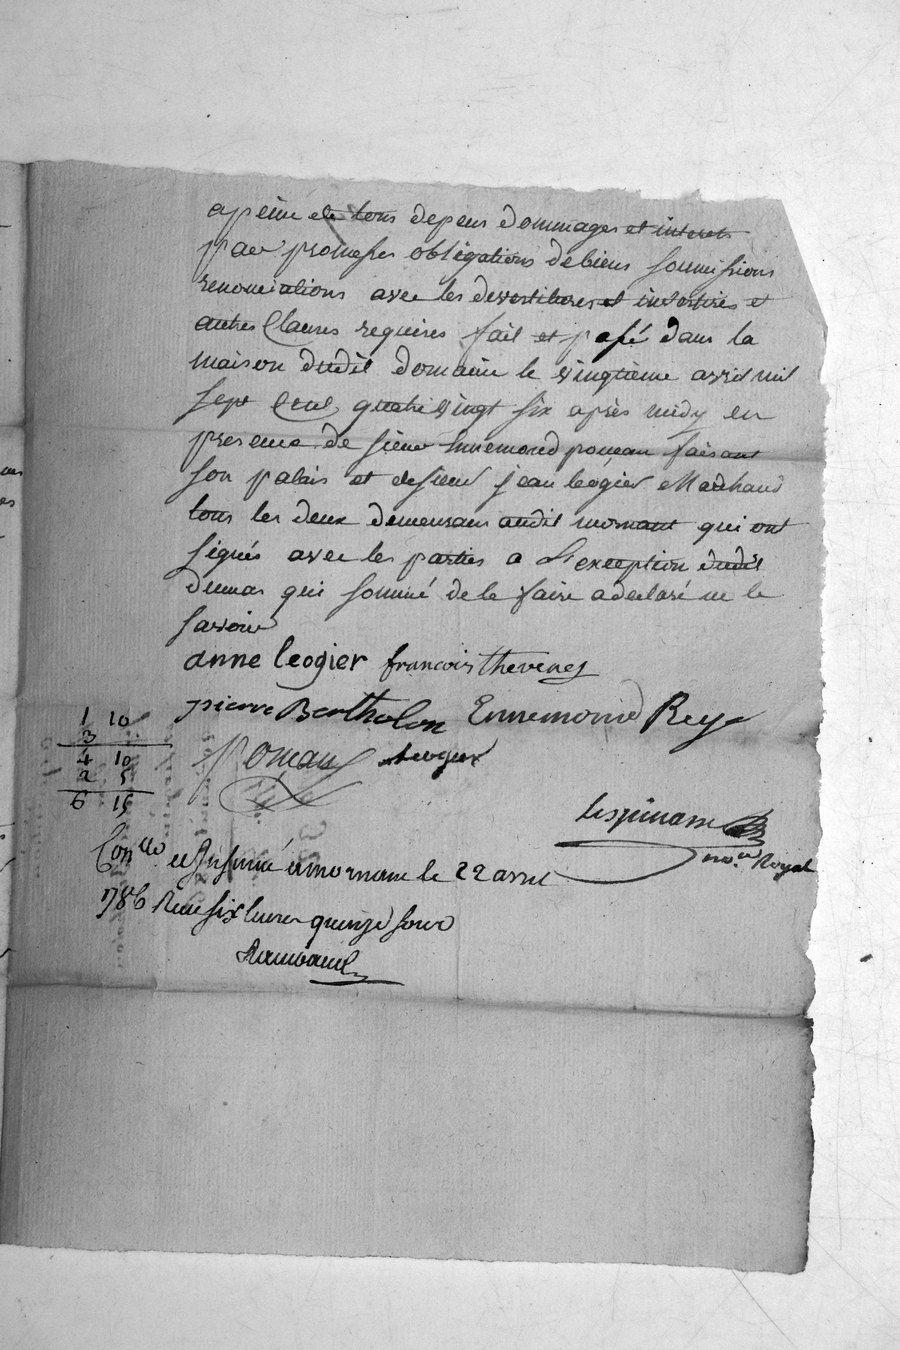 apeine de tous depens dommages et interets
par promesses obligations de biens soumissions
renonciations avec les devestitures et investires et
autres Clauses requises fait et passé dans la
maison dudit domaine le vingtieme avril mil
sept Cent quatre vingt six après midy en
presence de sieur Ennemond poncan faisant
son palais et de sieur jean leogier Marchand
tous les deux demeurans audit mornant qui ont
signés avec les parties a L'exception dudit
dumas qui sommé de le faire a declaré ne le
savoir
anne leogier francois thevenet
pierre Bertholon Ennemond Rey
1 10
3
4 10
2 5
6 15
leogier
lespinasse
no.re Royal
Con.lle et Insinué a mornant le 22 avril
1786 Recu six livres quinze sous